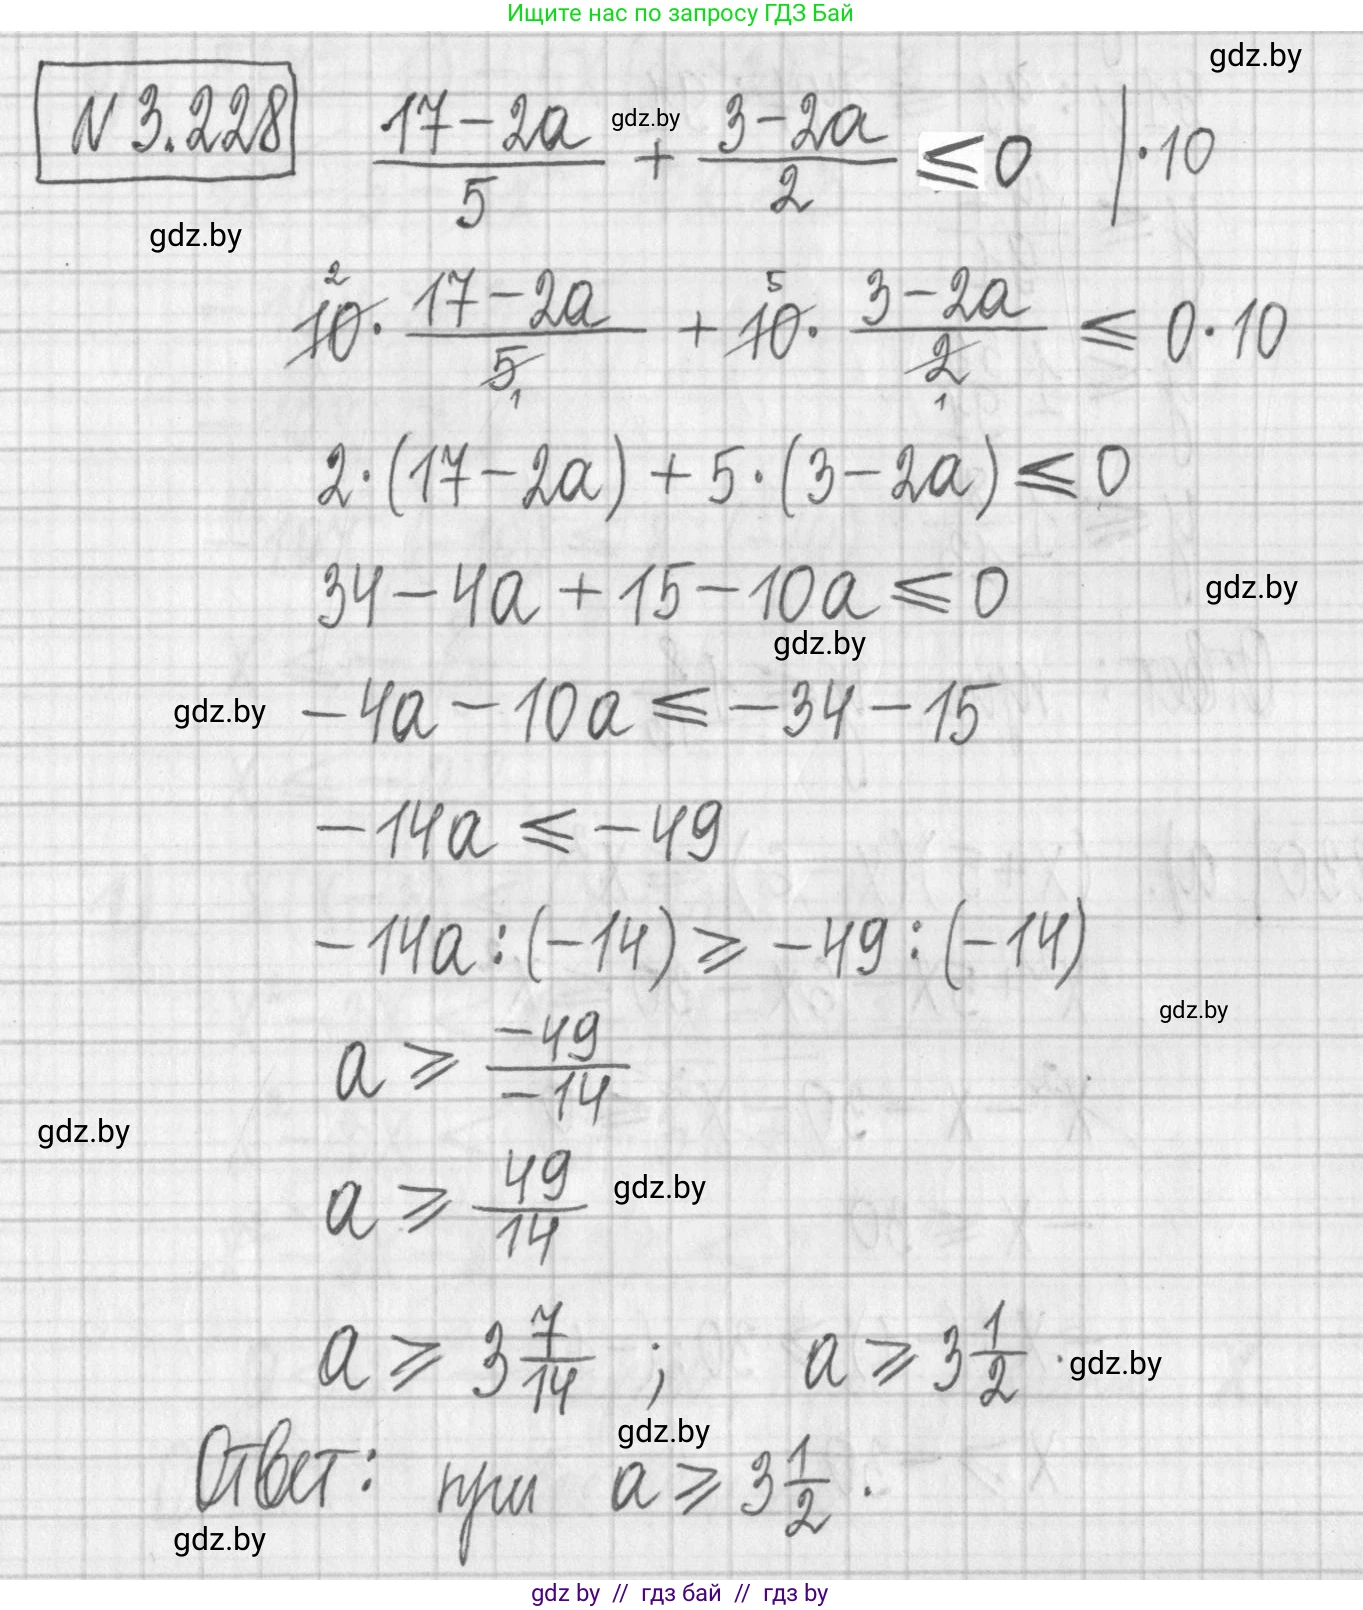 Ищите нас по запросу ГДЗ Бай
gdz.by
N 3.228 (17-2a)/5 + (3-2a)/2 ⩽ 0 | ·10
gdz.by
gdz.by
2 5
10 · (17-2a)/5 + 10 · (3-2a)/2 ⩽ 0·10
1 1
2·(17-2a)+5·(3-2a)⩽0
34-4a+15-10a⩽0
gdz.by
gdz.by
gdz.by
-4a-10a⩽-34-15
-14a⩽-49
-14a:(-14)⩾-49:(-14)
gdz.by
a⩾ -49/-14
gdz.by
a⩾ 49/14
gdz.by
a⩾3 7/14 ; a⩾3 1/2 .
gdz.by
gdz.by
Ответ: при a⩾3 1/2 .
gdz.by
gdz by // гдз бай // гдз by